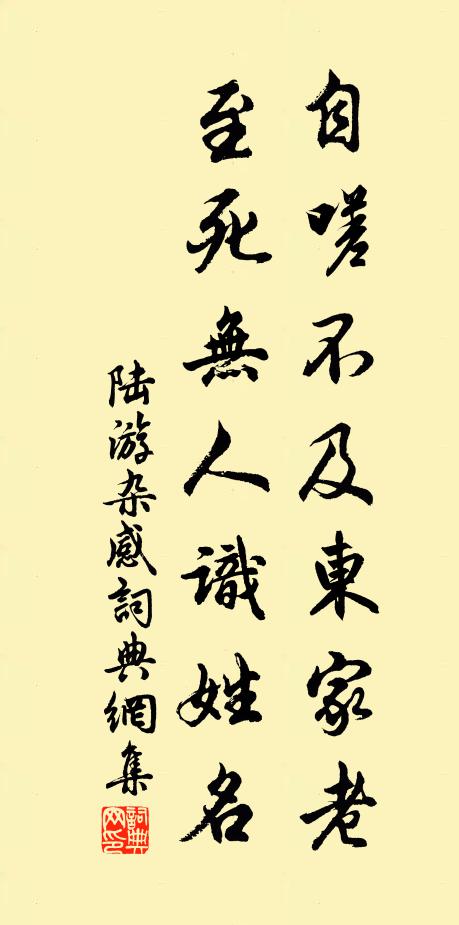 自嗟不及東家老
至死無人識姓名
陆游杂感詞典網集
詞典網印